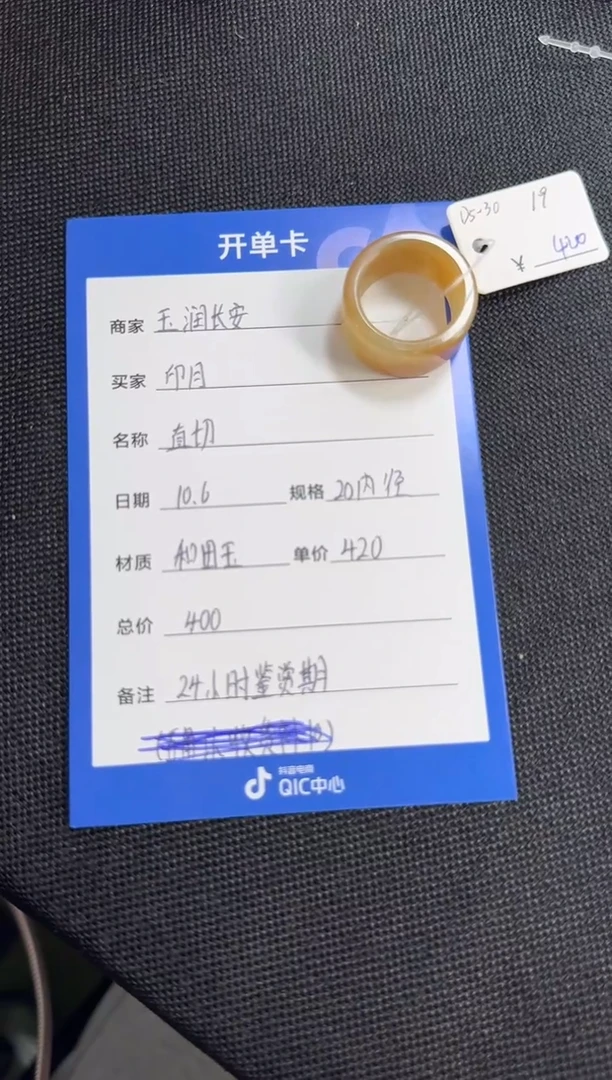 开单卡
DS-30 19
￥ 420
商家 玉润长安
买家 印月
名称 直切
日期 10.6 规格 20内径
材质 和田玉 单价 420
总价 400
备注 24小时鉴赏期
抖音电商
QIC中心